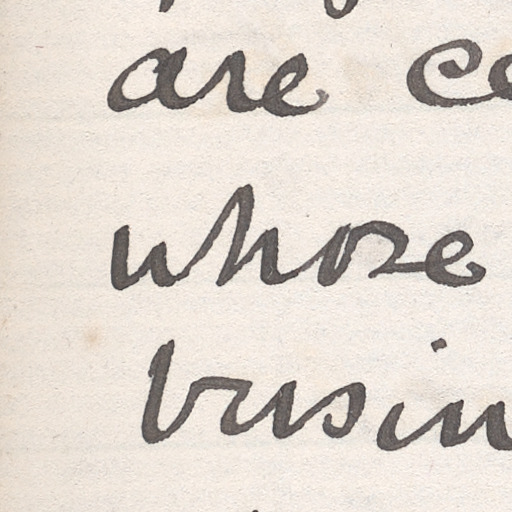 are ce
whose
busin